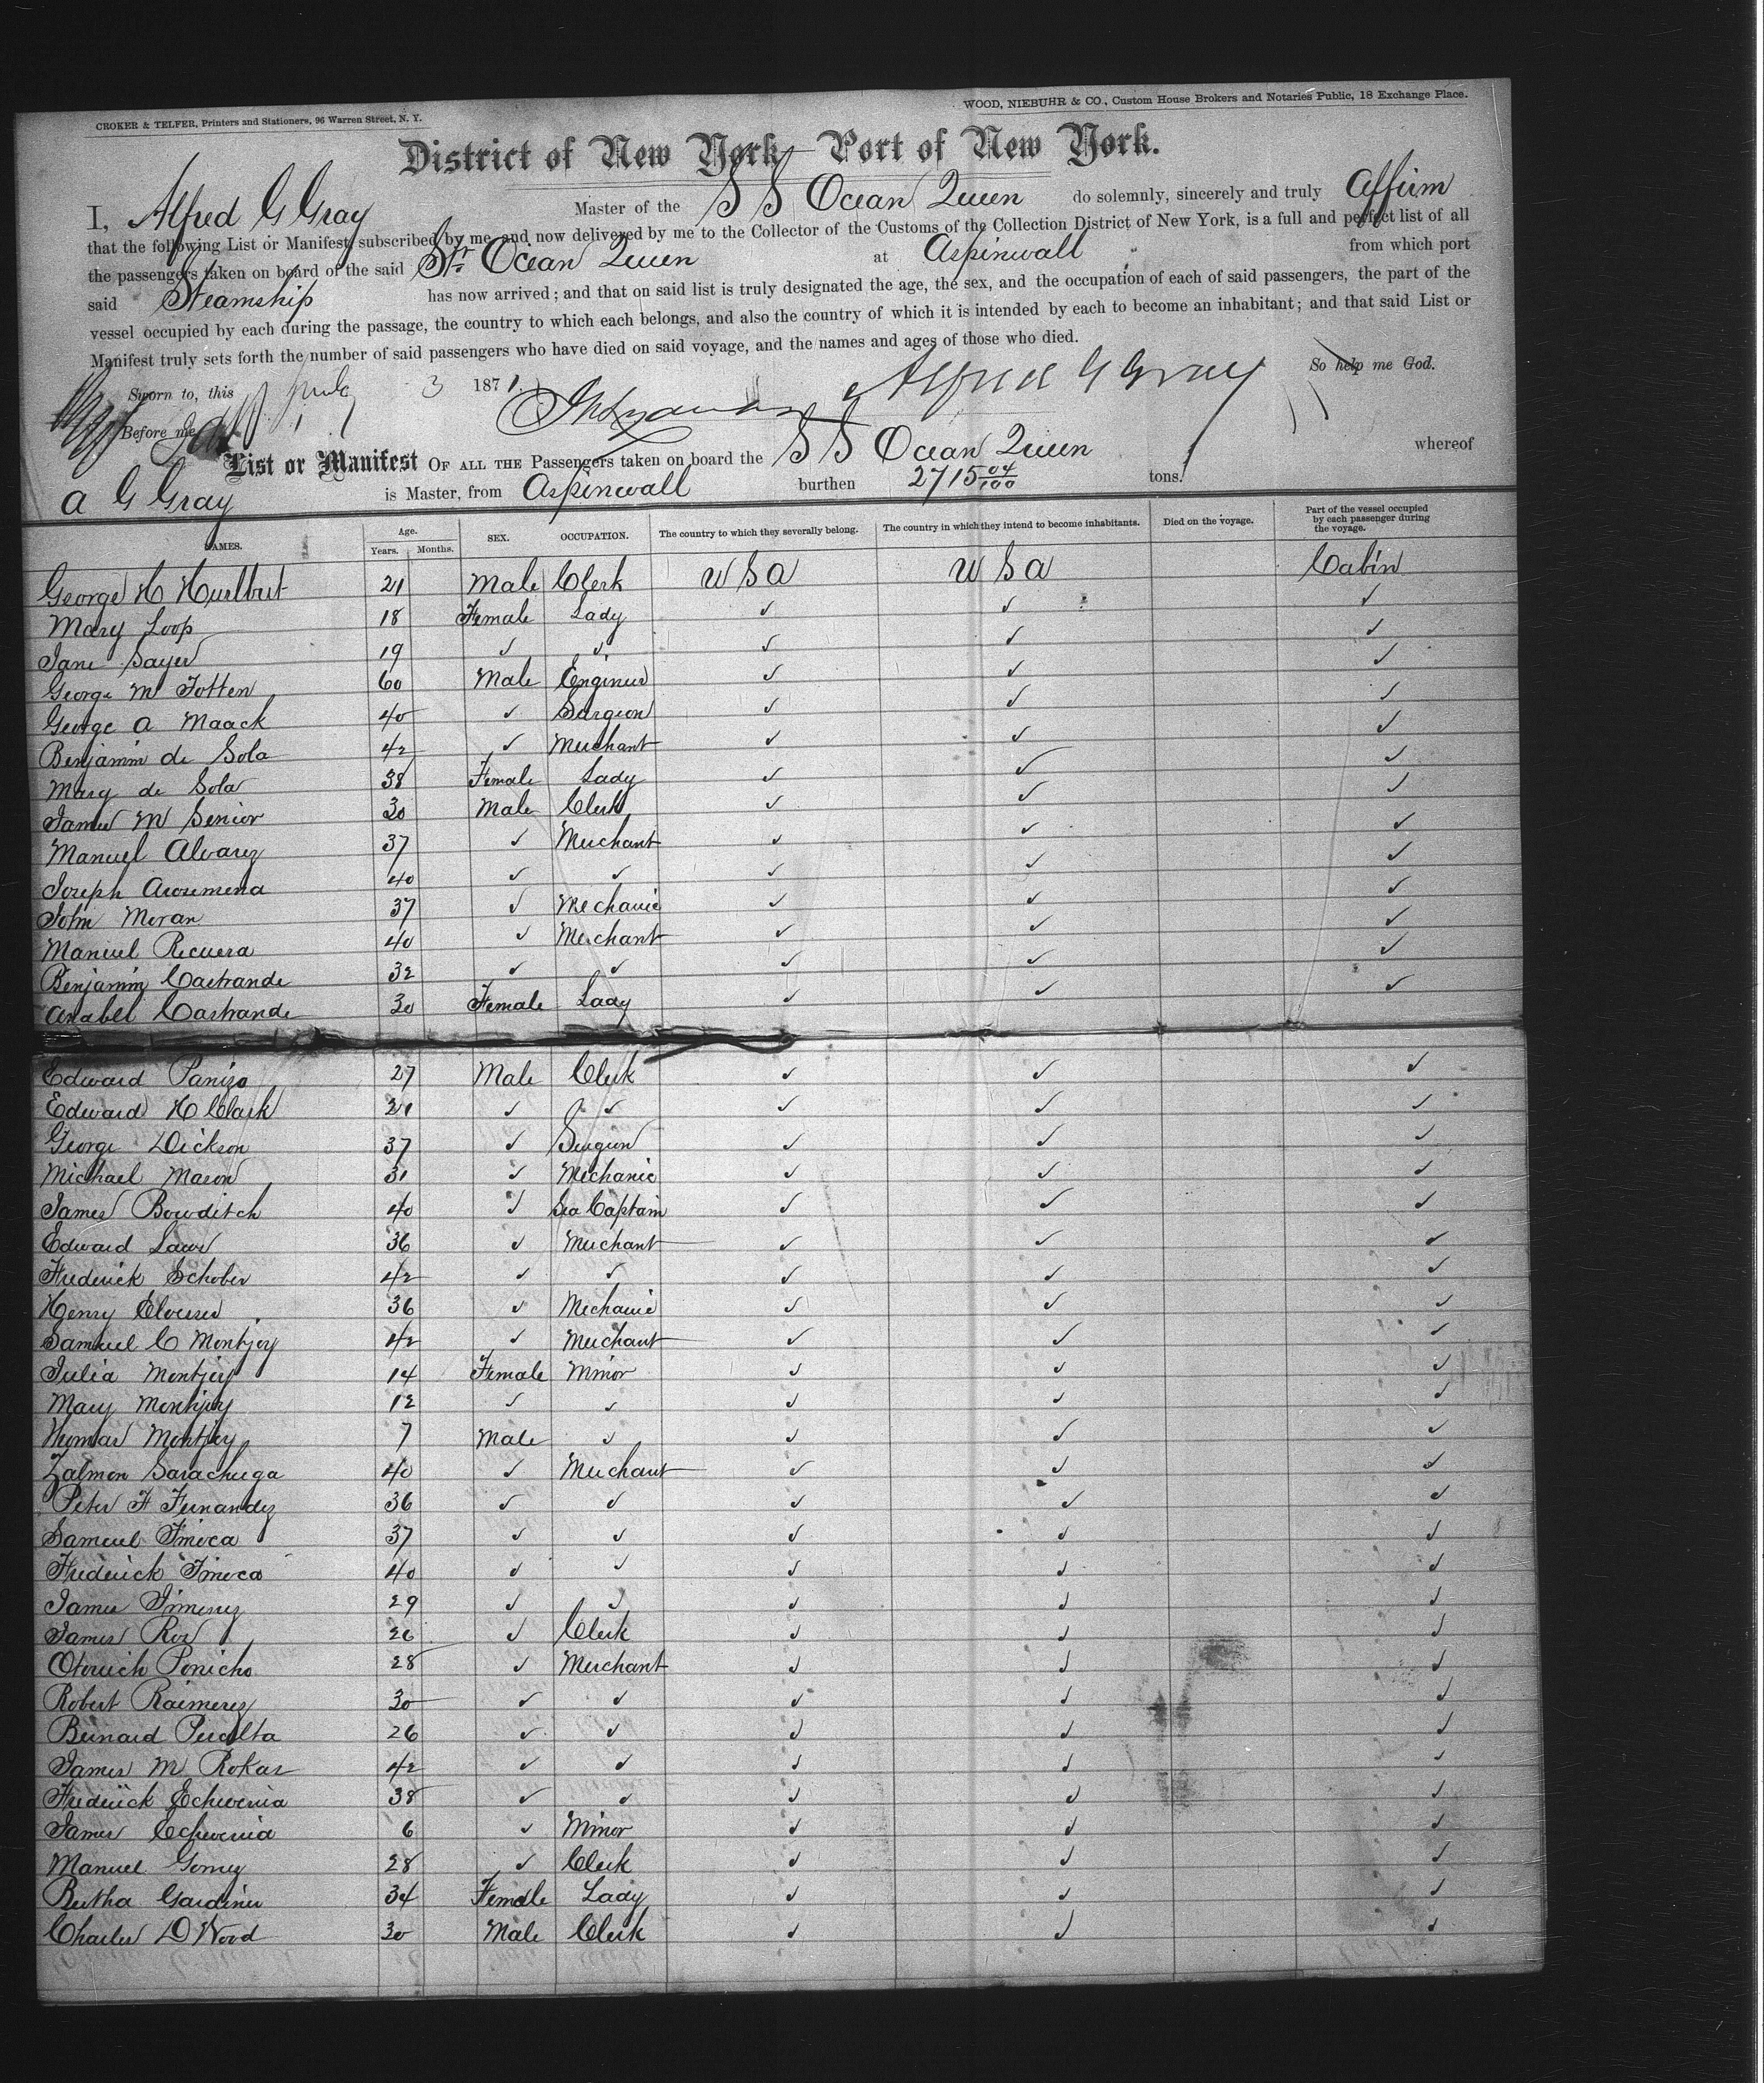 CROKER & TELFER, Printers and Stationers, 96 Warren Street, N. Y.
WOOD, NIEBUHR & CO., Custom House Brokers and Notaries Public, 18 Exchange Place.
District of New York Port of New York.
I, Alfred G Gray Master of the S S Ocean Queen do solemnly, sincerely and truly affirm
that the following List or Manifest, subscribed by me, and now delivered by me to the Collector of the Customs of the Collection District of New York, is a full and perfect list of all
the passengers taken on board of the said Str Ocean Queen at Aspinwall from which port
said Steamship has now arrived; and that on said list is truly designated the age, the sex, and the occupation of each of said passengers, the part of the
vessel occupied by each during the passage, the country to which each belongs, and also the country of which it is intended by each to become an inhabitant; and that said List or
Manifest truly sets forth the number of said passengers who have died on said voyage, and the names and ages of those who died.
So help me God.
Sworn to, this July 3 1871. Alfred G Gray
Before me
List or Manifest OF ALL THE Passengers taken on board the S S Ocean Queen whereof
A G Gray is Master, from Aspinwall burthen 2715 04/100 tons.
NAMES. Age. Years. Months. SEX. OCCUPATION. The country to which they severally belong. The country in which they intend to become inhabitants. Died on the voyage. Part of the vessel occupied by each passenger during the voyage.
George H Hurlbut 21 Male Clerk U S A U S A Cabin
Mary Loop 18 Female Lady ✓ ✓ ✓
Jane Sayer 19 ✓ ✓ ✓ ✓ ✓
George M Totten 60 Male Engineer ✓ ✓ ✓
George A Maack 40 ✓ Surgeon ✓ ✓ ✓
Benjamin de Sola 42 ✓ Merchant ✓ ✓ ✓
Mary de Sola 38 Female Lady ✓ ✓ ✓
James M Senior 30 Male Clerk ✓ ✓ ✓
Manuel Alvarez 37 ✓ Merchant ✓ ✓ ✓
Joseph Arosemena 40 ✓ ✓ ✓ ✓ ✓
John Moran 37 ✓ Mechanic ✓ ✓ ✓
Manuel Recuera 40 ✓ Merchant ✓ ✓ ✓
Benjamin Castrande 32 ✓ ✓ ✓ ✓ ✓
Anabel Castrande 30 Female Lady ✓ ✓ ✓
Edward Panizo 27 Male Clerk ✓ ✓ ✓
Edward H Clark 21 ✓ ✓ ✓ ✓ ✓
George Dickson 37 ✓ Surgeon ✓ ✓ ✓
Michael Mason 31 ✓ Mechanic ✓ ✓ ✓
James Bowditch 40 ✓ Sea Captain ✓ ✓ ✓
Edward Laws 36 ✓ Merchant ✓ ✓ ✓
Frederick Schober 42 ✓ ✓ ✓ ✓ ✓
Henry 36 ✓ Mechanic ✓ ✓ ✓
Samuel C Montjoy 42 ✓ Merchant ✓ ✓ ✓
Julia Montjoy 14 Female Minor ✓ ✓ ✓
Mary Montjoy 12 ✓ ✓ ✓ ✓ ✓
Thomas Montjoy 7 Male ✓ ✓ ✓ ✓
Zalmon Sarachuga 40 ✓ Merchant ✓ ✓ ✓
Peter F Fernandez 36 ✓ ✓ ✓ ✓ ✓
Samuel 37 ✓ ✓ ✓ ✓ ✓
Frederick 40 ✓ ✓ ✓ ✓ ✓
James Jimenez 29 ✓ ✓ ✓ ✓ ✓
James Ros 26 ✓ Clerk ✓ ✓ ✓
Ponicho 28 ✓ Merchant ✓ ✓ ✓
Robert Raimerez 30 ✓ ✓ ✓ ✓ ✓
Bernard Peralta 26 ✓ ✓ ✓ ✓ ✓
James M Rokas 42 ✓ ✓ ✓ ✓ ✓
Frederick Echeverria 38 ✓ ✓ ✓ ✓ ✓
James Echeverria 6 ✓ Minor ✓ ✓ ✓
Manuel Gomez 28 ✓ Clerk ✓ ✓ ✓
Bertha Gardiner 34 Female Lady ✓ ✓ ✓
Charles D Wood 30 Male Clerk ✓ ✓ ✓